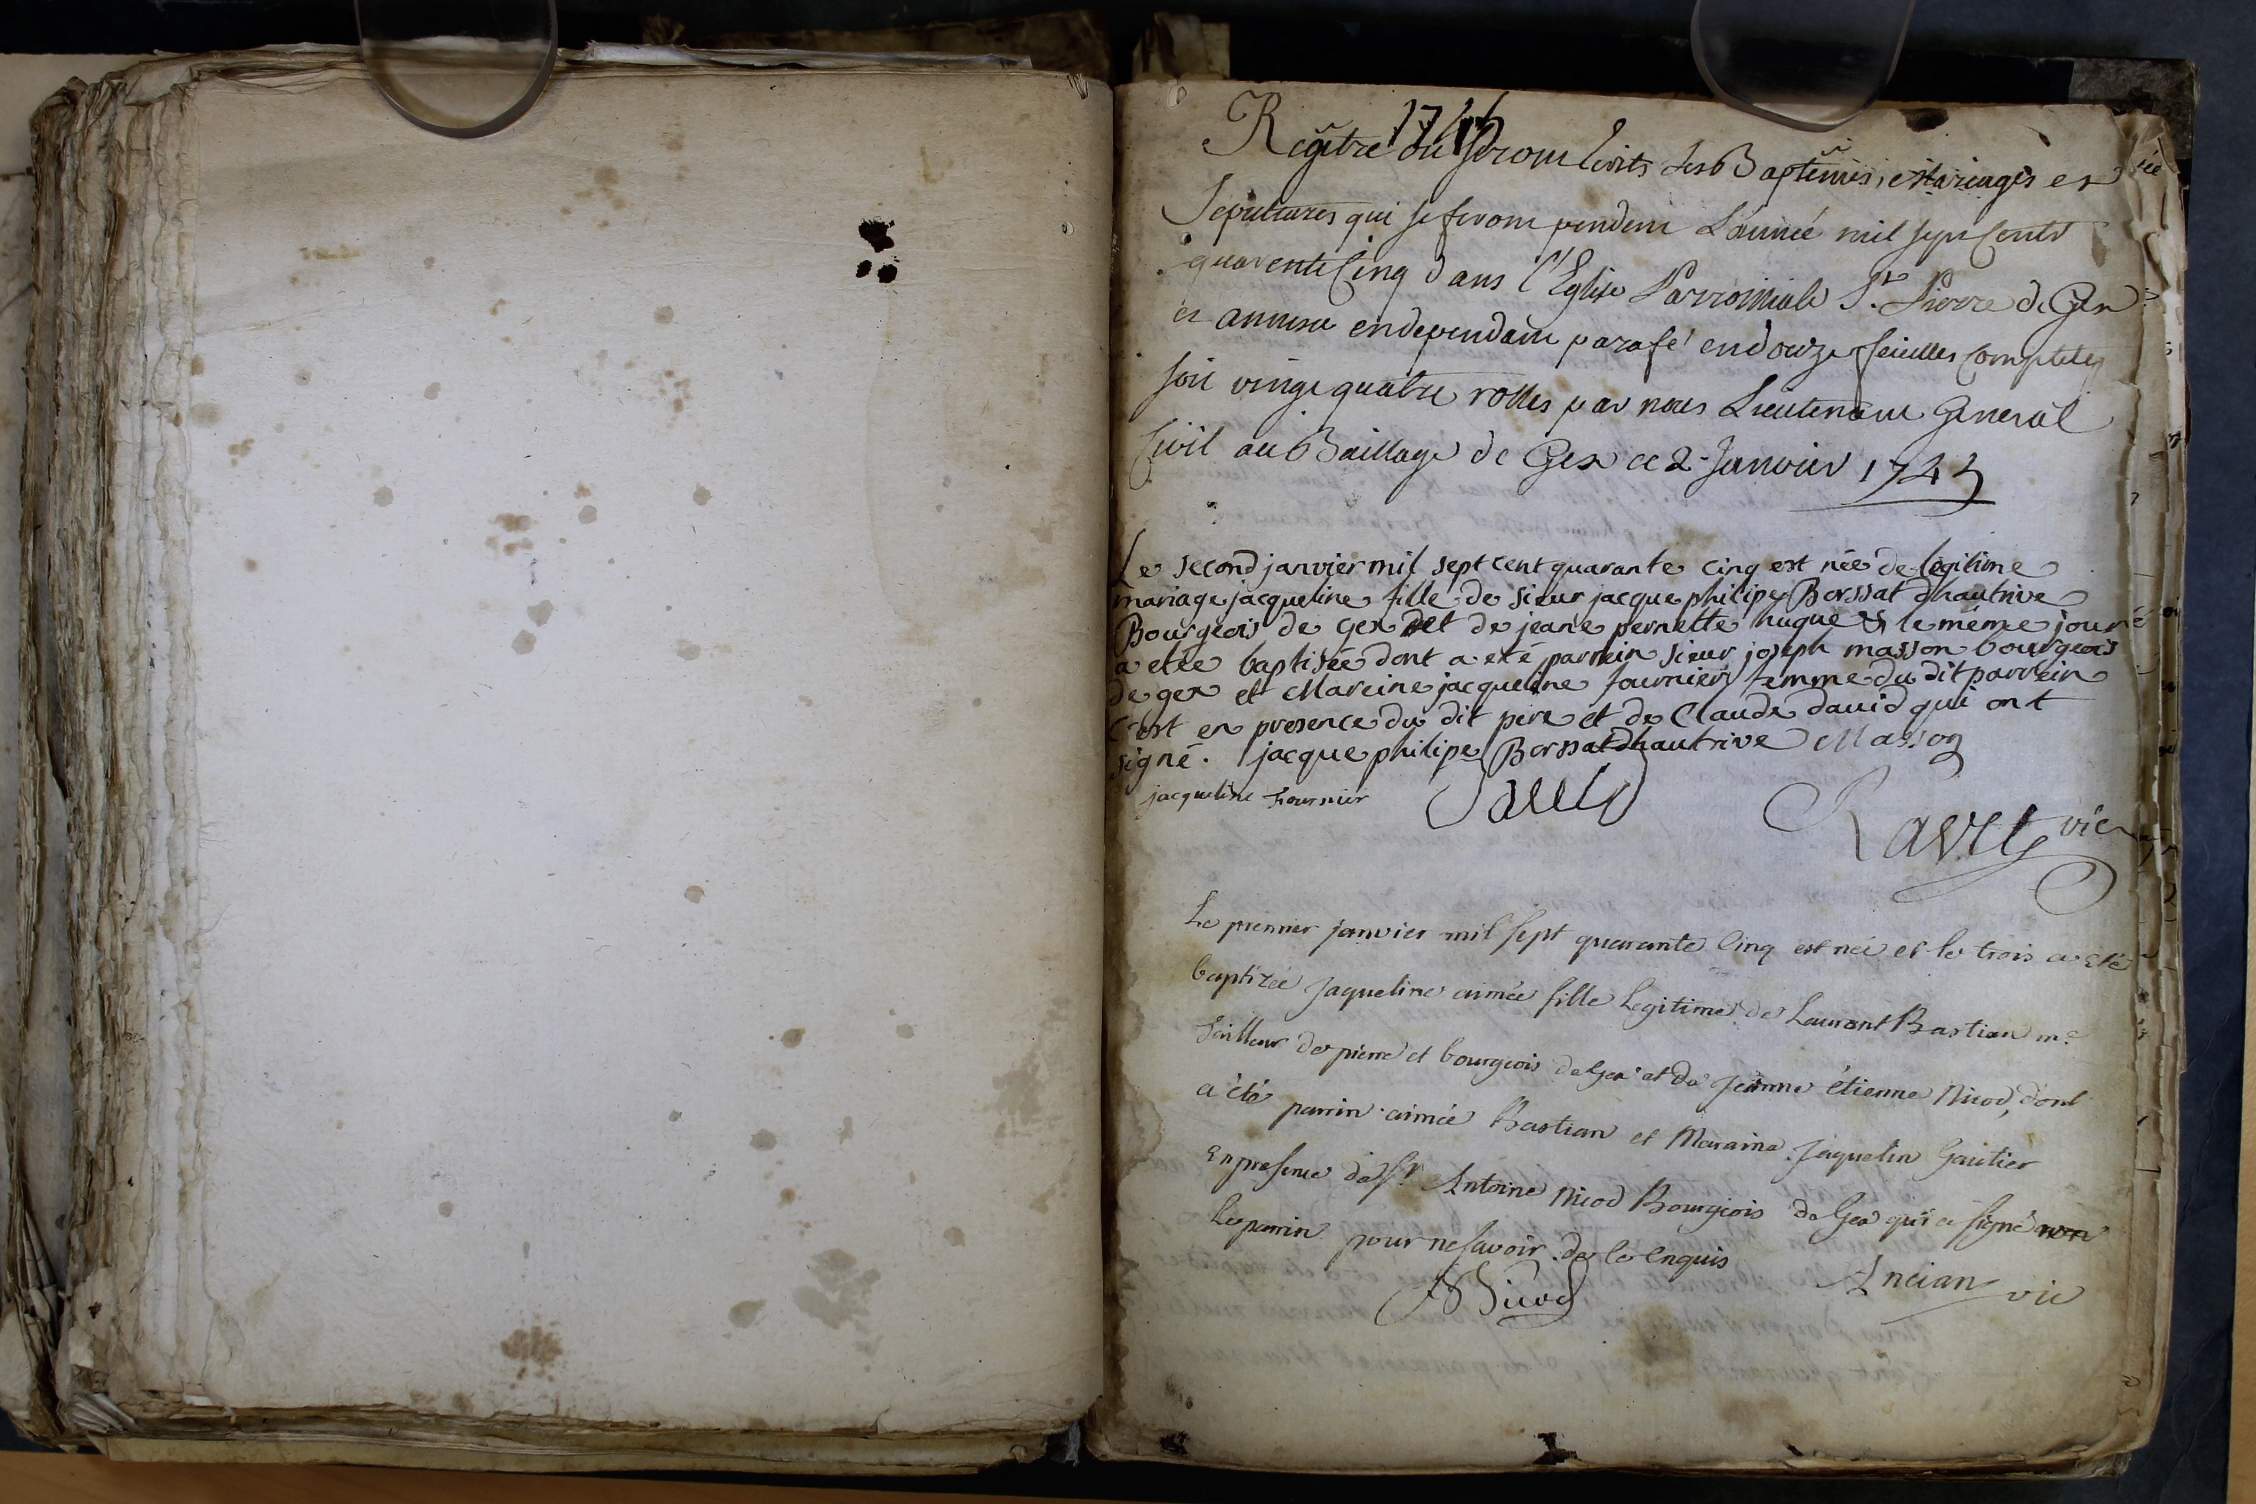 1745
Regître ou seront Ecrits les Baptêmes, Mariages et
Sepultures qui se feront pendent L'année mil sept cents
quarente Cinq dans l'Eglise Parroissiale St. Pierre de Gex
et annexe en dependant parafé en douze feuilles complettes
soit vingt quatre rolles par nous Lieutenant General
Civil au Baillage de Gex ce 2 Janvier 1745
Le second janvier mil sept cent quarante cinq est née de legitime
mariage jacqueline fille de sieur jacque philipe Borssat dhautrive
Bourgeois de gex et de jeane pernette huque & le même jour
a etée baptisée dont a eté parrein sieur joseph masson bourgeois
de gex et Mareine jacqueline fournier femme du dit parrein
C'est en presence du dit pere et de Claude david qui ont
signé. jacque philipe Borssat dhautrive Masson
jacqueline fournier
Ravet vic
Le premier janvier mil sept quarante Cinq est née et le trois a été
baptizée Jaqueline aimée fille Legitime de Laurant Bastian me
tailleur de pierre et bourgeois de Gex et de Jeanne étienne Nicod, dont
a été parrin aimée Bastian et Maraine Jaquelin Gautier
En presence de Sr Antoine Nicod Bourgeois de Gex qui a signé non
Le parrin pour ne savoir de ce Enquis
A Nicod Ancian vic